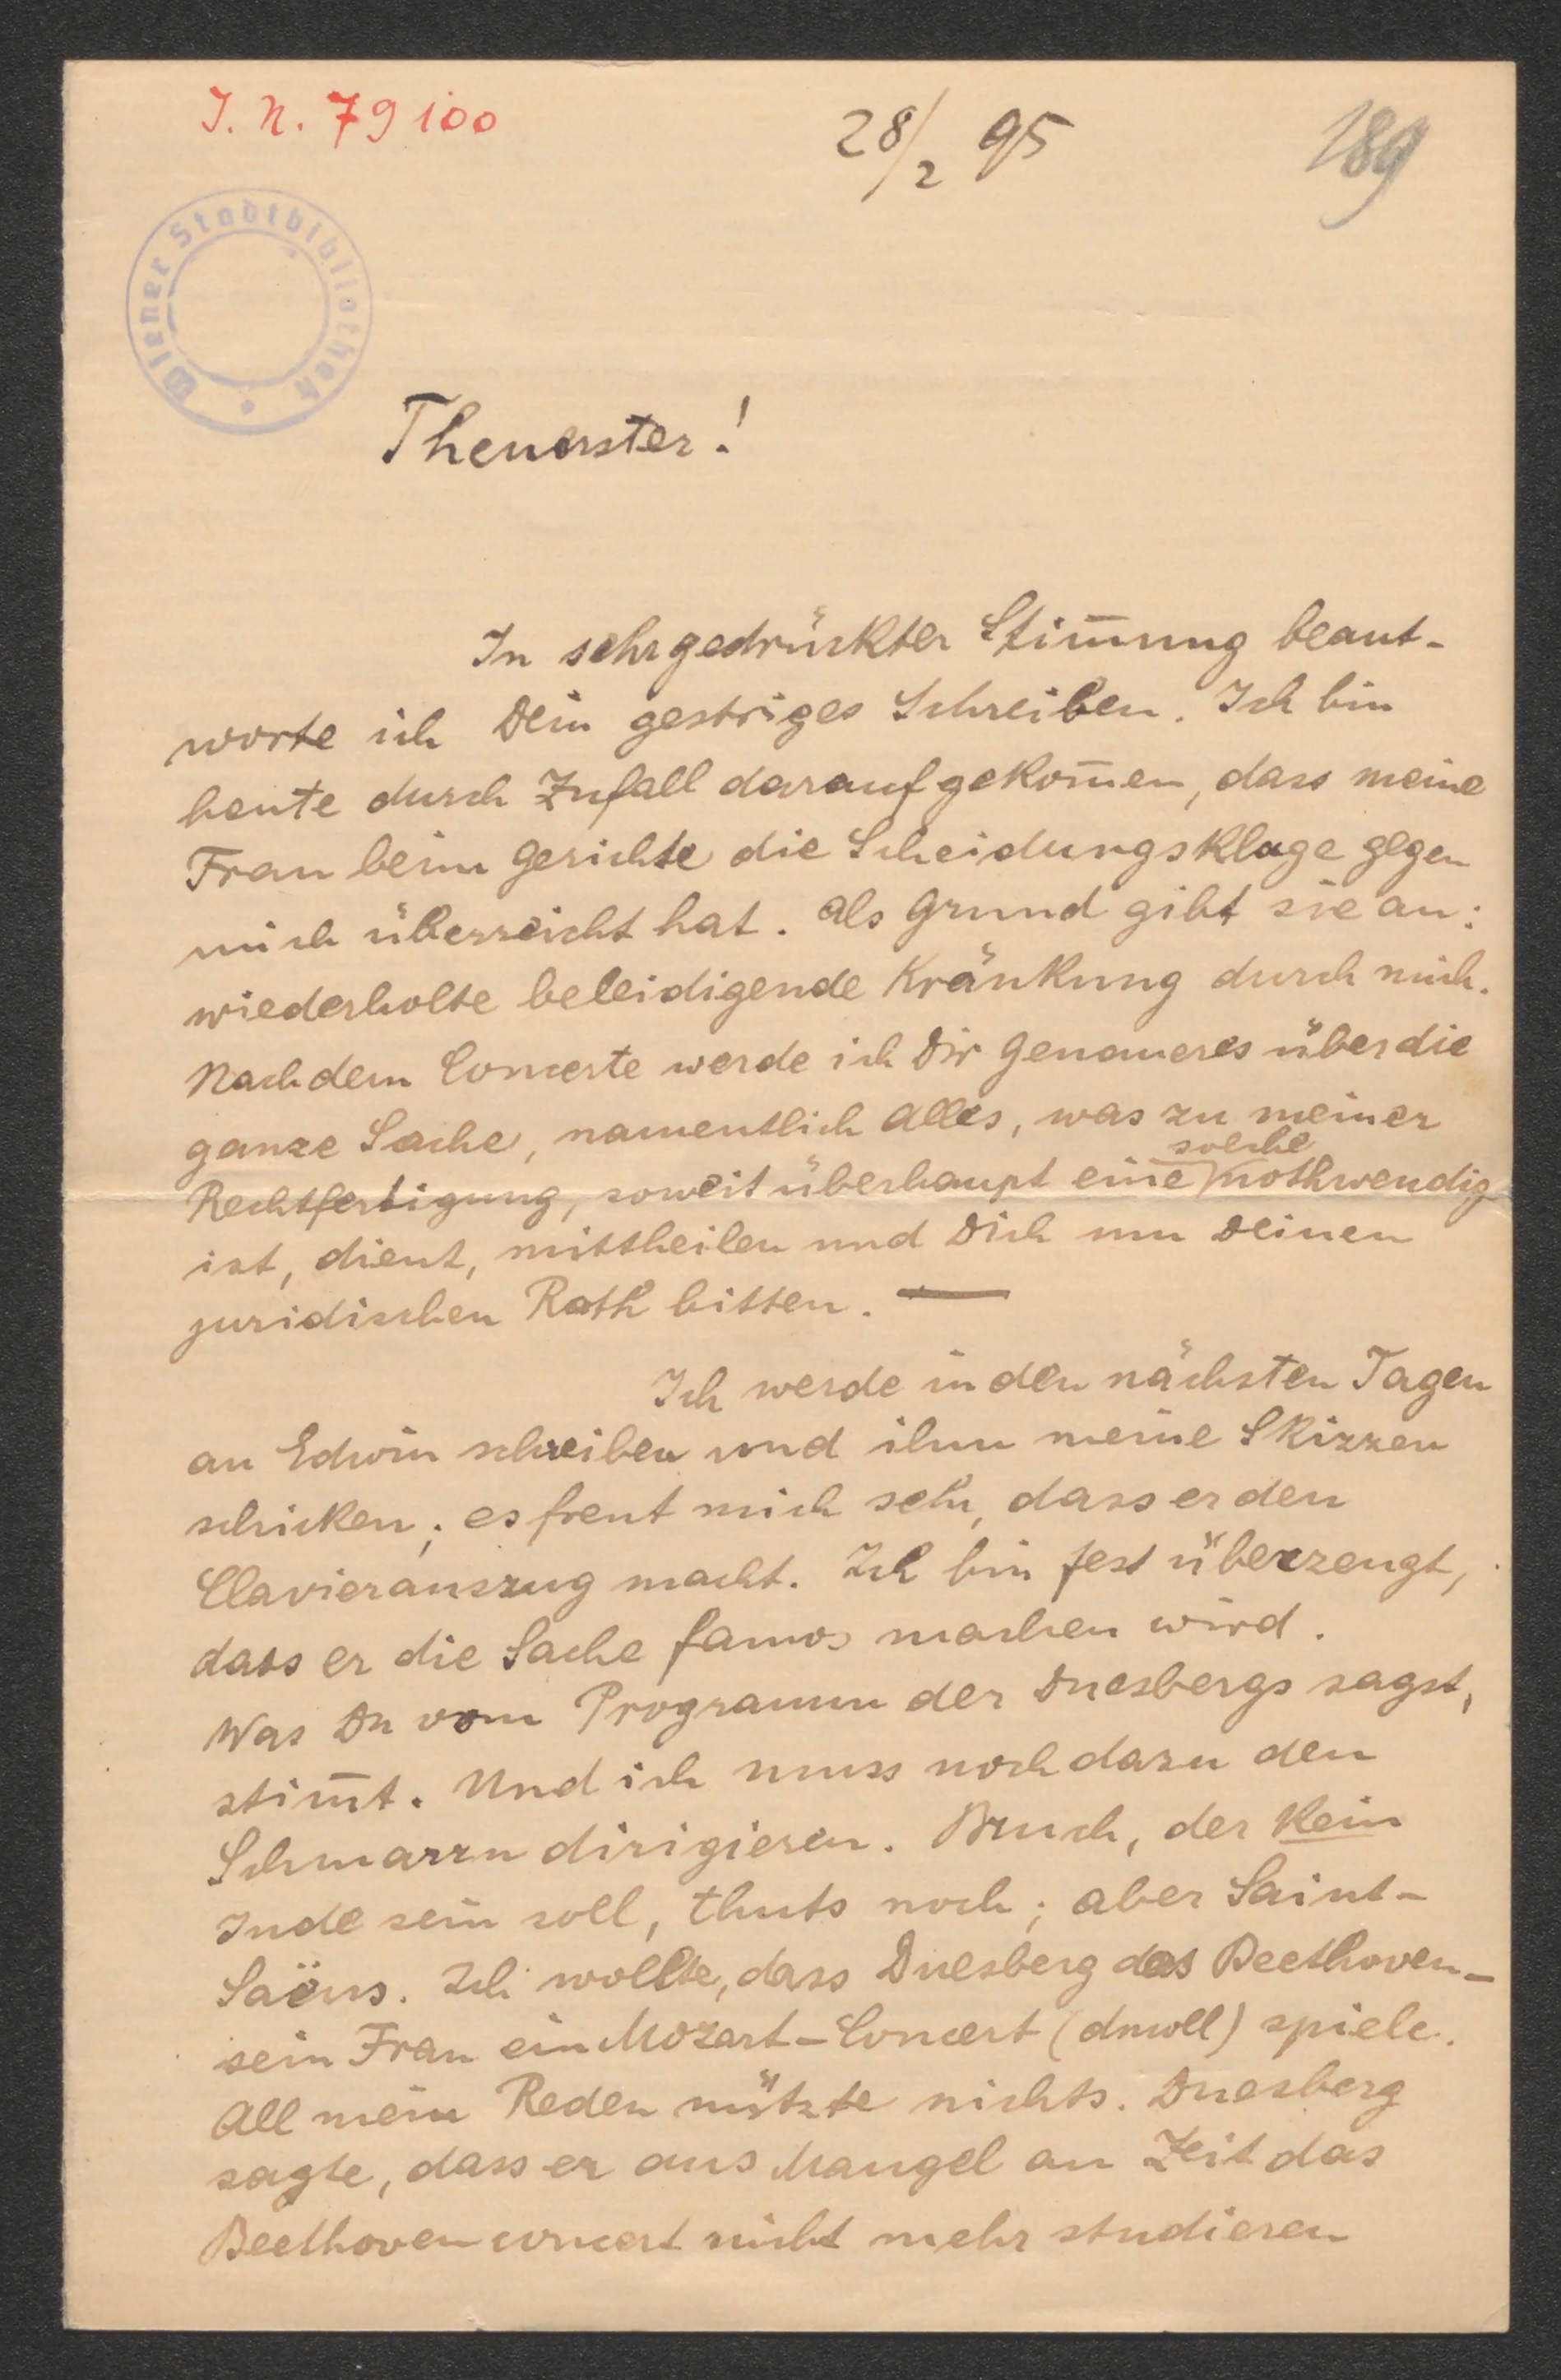 J. N. 79100
28/2 95
189
Wiener Stadtbibliothek
Theuerster!
In sehr gedrückter Stim̄ung beant-
worte ich Dein gestriges Schreiben. Ich bin
heute durch Zufall darauf gekom̄en, dass meine
Frau beim Gerichte die Scheidungsklage gegen
mich überreicht hat. Als Grund gibt sie an:
wiederholte beleidigende Kränkung durch mich.
Nach dem Concerte werde ich Dir Genaueres über die
ganze Sache, namentlich Alles, was zu meiner
solche
Rechtfertigung, soweit überhaupt eine nothwendig
ist, dient, mittheilen und Dich um Deinen
juridischen Rath bitten. —
Ich werde in den nächsten Tagen
an Edwin schreiben und ihm meine Skizzen
schicken; es freut mich sehr, dass er den
Clavierauszug macht. Ich bin fest überzeugt,
dass er die Sache famos machen wird.
Was Du vom Programm der Duesbergs sagst,
stim̄t. Und ich muss noch dazu den
Schmarrn dirigieren. Bruch, der kein
Jude sein soll, thuts noch; aber Saint-
Saëns. Ich wollte, dass Duesberg das Beethoven-
sein Frau ein Mozart-Concert (dmoll) spiele.
All mein Reden nützte nichts. Duesberg
sagte, dass er aus Mangel an Zeit das
Beethovenconcert nicht mehr studieren